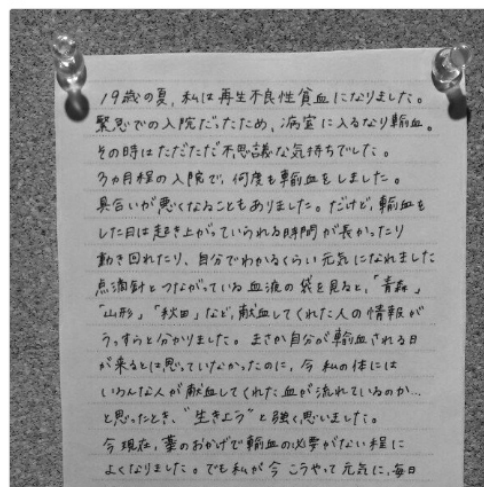 19歳の夏、私は再生不良性貧血になりました。
緊急での入院だったため、病室に入るなり輸血。
その時はただただ不思議な気持ちでした。
3カ月程の入院で、何度も輸血をしました。
具合いが悪くなることもありました。だけど、輸血を
した日は起き上がっていられる時間が長かったり
動き回れたり、自分でわかるくらい元気になれました
点滴針とつながっている血液の袋を見ると、「青森」
「山形」「秋田」など、献血してくれた人の情報が
うっすらと分かりました。まさか自分が輸血される日
が来るとは思っていなかったのに、今 私の体には
いろんな人が献血してくれた血が流れているのか…
と思ったとき、"生きよう"と強く思いました。
今現在、薬のおかげで輸血の必要がない程に
よくなりました。でも私が今 こうやって元気に、毎日